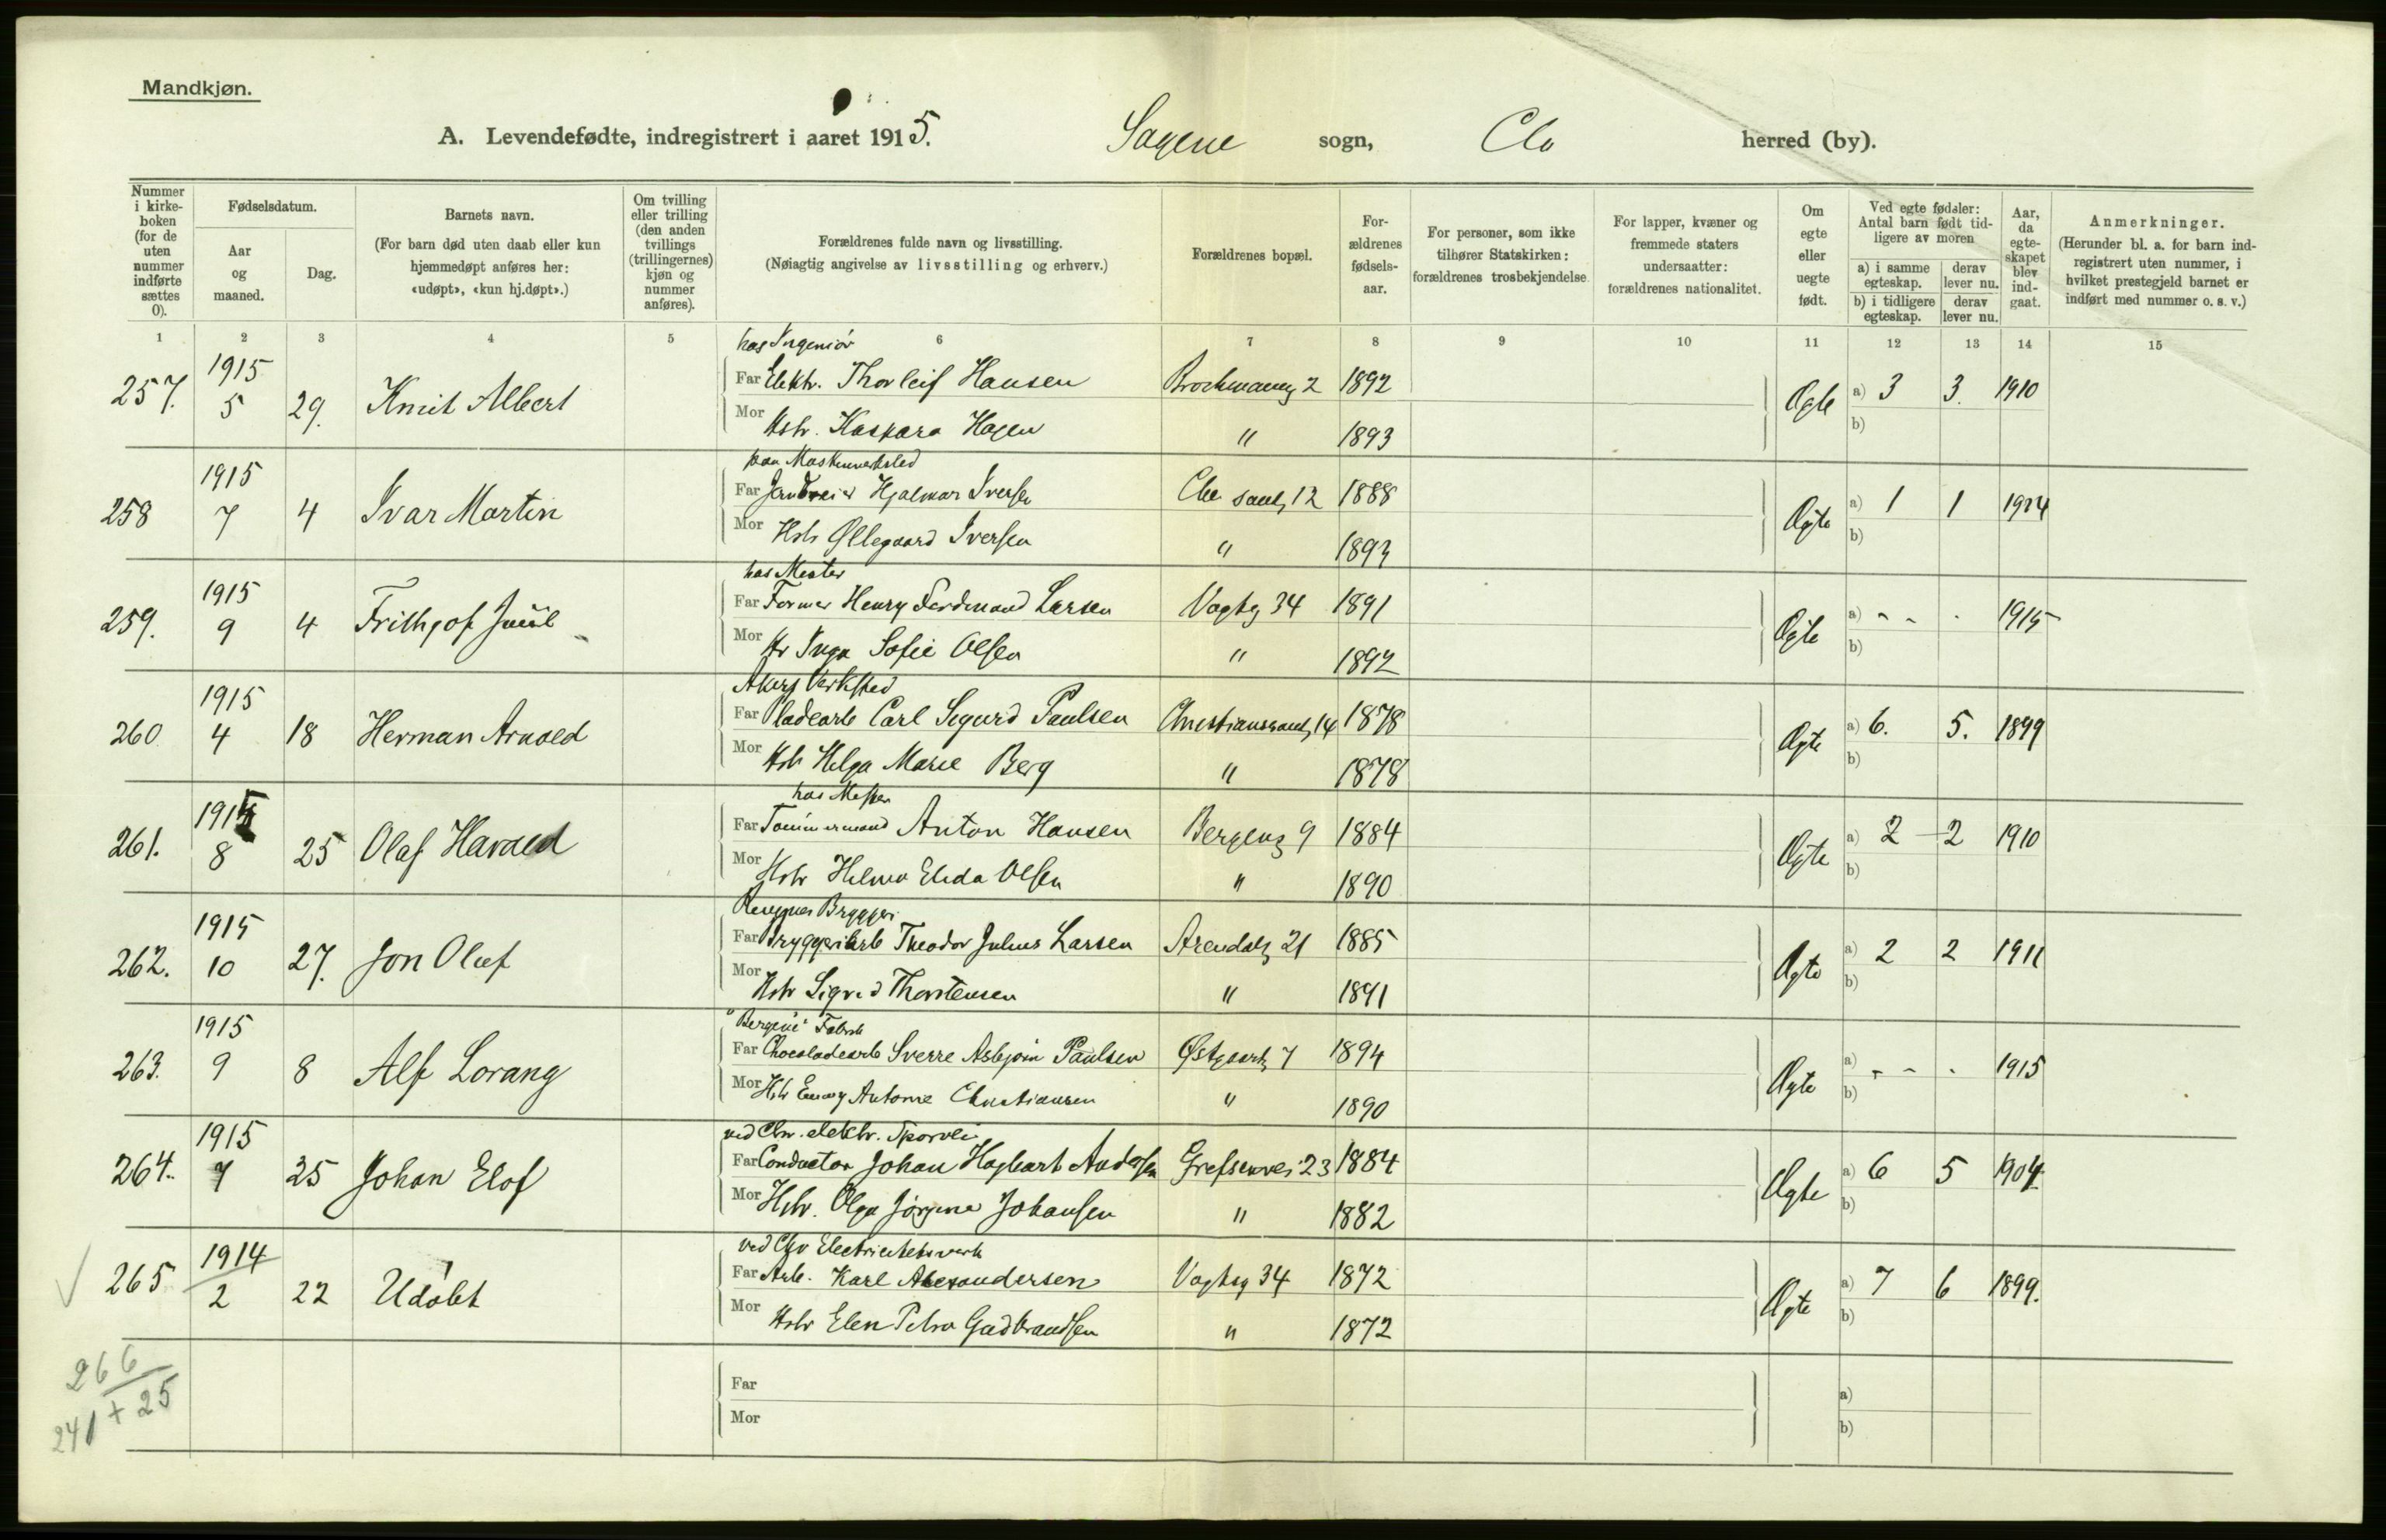 Mandkjøn.
A. Levendefødte, indregistrert i aaret 1915. Sagene sogn, Chr herred (by).
Nummer i kirke-boken (for de uten nummer indførte sættes 0).
Fødselsdatum.
Aar og maaned.
Dag.
Barnets navn.
(For barn død uten daab eller kun hjemmedøpt anføres her: «udøpt», «kun hj.døpt».)
Om tvilling eller trilling (den anden tvillings (trillingernes) kjøn og nummer anføres).
Forældrenes fulde navn og livsstilling.
(Nøiagtig angivelse av livsstilling og erhverv.)
Forældrenes bopæl.
For-ældrenes fødsels-aar.
For personer, som ikke tilhører Statskirken: forældrenes trosbekjendelse
For lapper, kvæner og fremmede staters undersaatter: forældrenes nationalitet.
Om egte eller uegte født.
Ved egte fødsler: Antal barn født tid-ligere av moren
a) i samme egteskap.
derav lever nu.
b) i tidligere egteskap.
derav lever nu.
Aar, da egte-skapet blev ind-gaat.
Anmerkninger.
(Herunder bl. a. for barn ind-registrert uten nummer, i hvilket prestegjeld barnet er indført med nummer o. s. v.)
1 2 3 4 5 6 7 8 9 10 11 12 13 14 15
hos Ingeniør
257. 1915 5 29. Knut Albert Far Elektr. Thorleif Hansen Brochmannsg 2 1892 Ægte a) 3 3. 1910
Mor Hstr. Kaspara Hagen " 1893 b)
paa Maskinverksted
258 1915 7 4 Ivar Martin Far Hjalmar Iversen 12 1888 Ægte a) 1 1 1914
Mor Hstr Øllegaard Iversen " 1893 b)
hos Mester
259. 1915 9 4 Frithjof Far Former Henry Ferdinand Larsen Vogtsg 34 1891 Ægte a) - - - 1915
Mor Hr Inga Sofie Olsen " 1892 b)
Akers Verksted
260 1915 4 18 Herman Arnold Far Pladearb Carl Sigurd Paulsen Christiansandsg 14 1878 Ægte a) 6. 5. 1899
Mor Hstr Helga Marie Berg " 1878 b)
hos Mester
261. 1915 8 25 Olaf Harald Far Tømmermand Anton Hansen Bergensg 9 1884 Ægte a) 2 - 2 1910
Mor Hstr Helma Elida Olsen " 1890 b)
Ringnes Bryggeri
262. 1915 10 27. Jon Oluf Far Bryggeriarb Theodor Julius Larsen Arendalsg 21 1885 Ægte a) 2 2 1911
Mor Hstr Sigrid Thorstensen " 1891 b)
"Bergene" Fabrik
263. 1915 9 8 Alf Lorang Far Chocoladearb Sverre Asbjørn Paulsen Østgaardsg 7 1894 Ægte a) - - - 1915
Mor Hstr Emmy Antonie Christiansen " 1890 b)
ved Chr. elektr. Sporvei
264. 1915 7 25 Johan Elof Far Conductør Johan Hagbart Andersen Grefsenvei 23 1884 Ægte a) 6 5 1904.
Mor Hstr. Olga Jørgine Johansen " 1882 b)
ved Chr Electricitetsverk
✓ 265 1914 2 22 Udøbt Far Arb. Karl Alexandersen Vogtsg 34 1872 Ægte a) 7 6 1899.
Mor Hstr Elen Petra Gudbrandsen " 1872 b)
266
241 + 25
Far a)
Mor b)